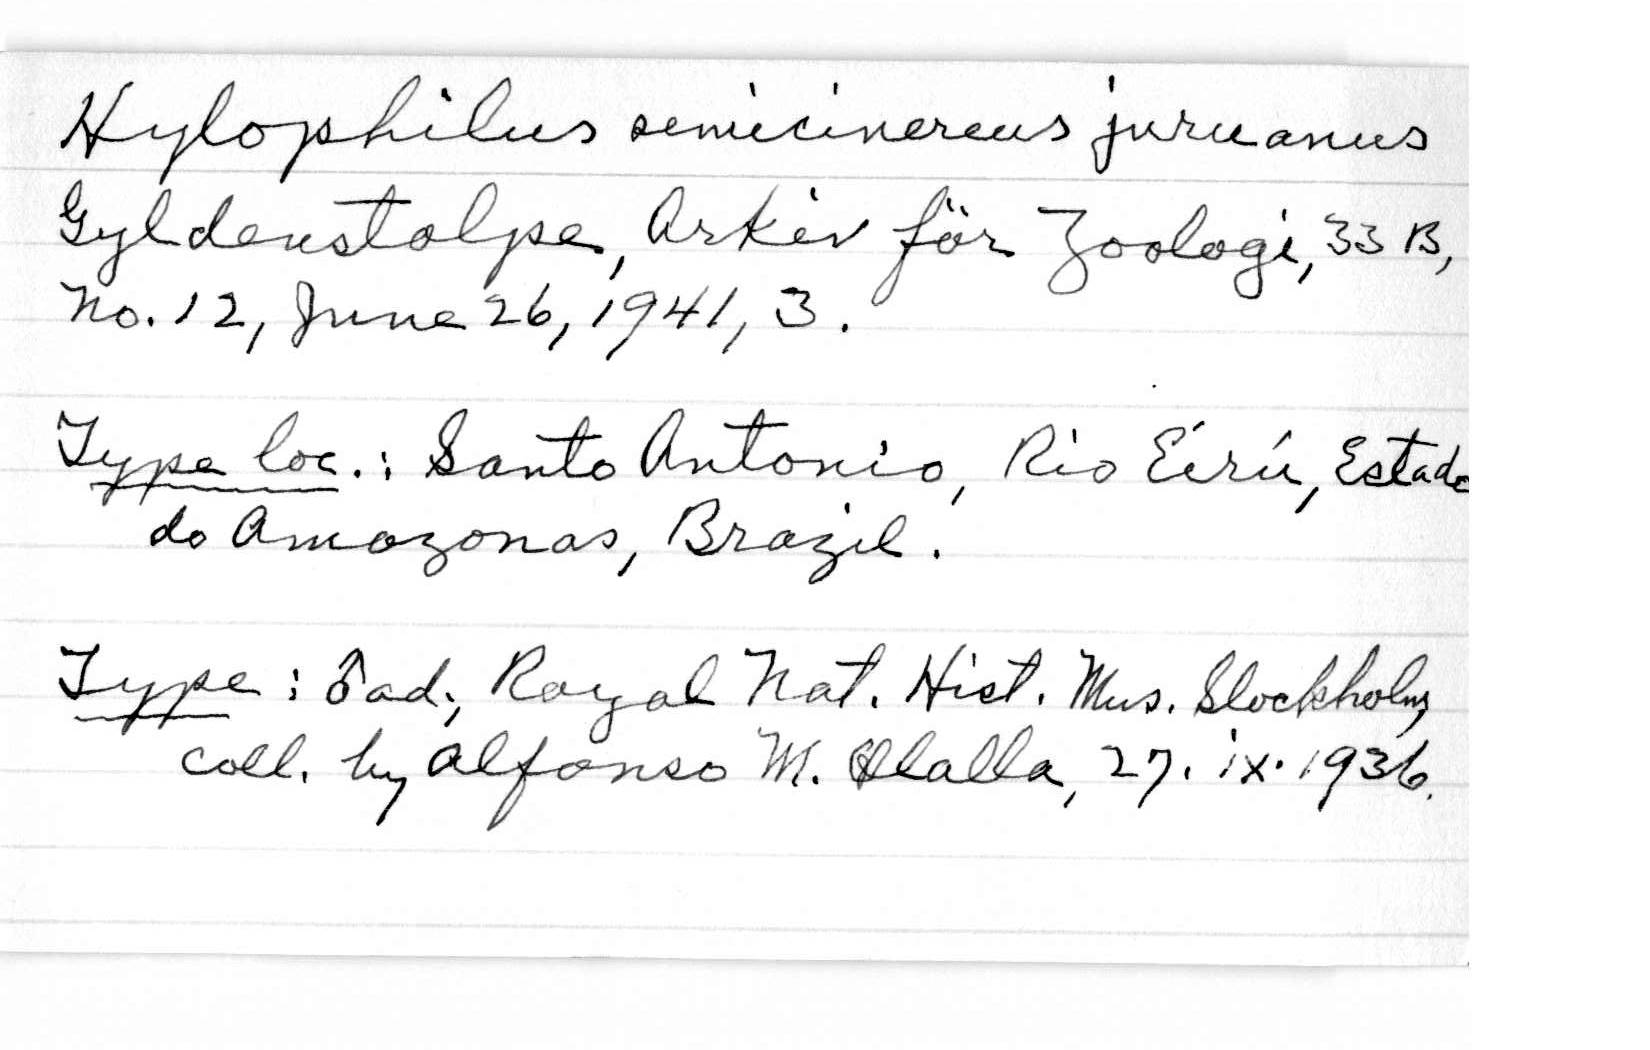 Hylophilus semicinereus juruanus
Gyldenstolpe, Arkiv för Zoologi, 33 B,
No. 12, June 26, 1941, 3.
Type loc.: Santo Antonio, Rio Eirú, Estado
do Amazonas, Brazil.
Type: ♂ ad., Royal Nat. Hist. Mus. Stockholm,
coll. by Alfonso M. Olalla, 27. ix. 1936.